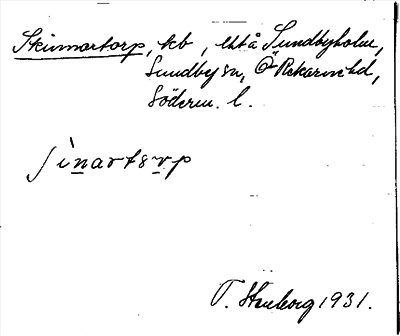 Skinnartorp, tb, uto Sundbyholm,
Sundby sn, Ö Rekarne hd,
Söderm. l.
ʃinartɜrp
1931.